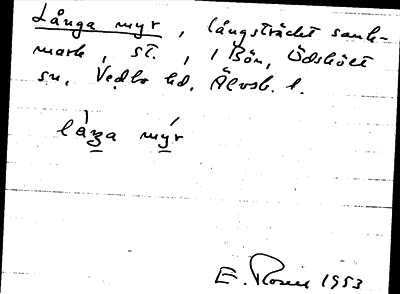 Långa myr, långsträckt sank-
mark, st., i Bön, Ödskölt
sn, Vedbo hd, Älvsb. l.
låŋa myr
E. 1953